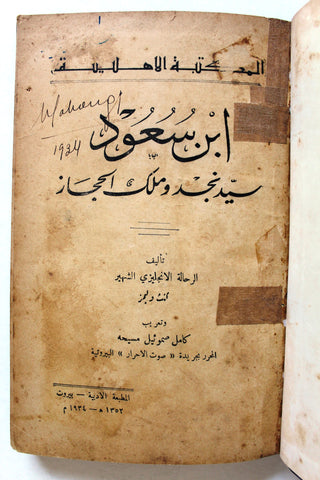 المكتبة الاهلية
1934
ابن سُعُود
سيّد نجد وملك الحجاز
تأليف
الرحالة الانجليزي الشهير
كنث وليمز
وتعريب
كامل صموئيل مسيحه
المحرر بجريدة « صوت الاحرار » البيروتية
المطبعة الادبية — بيروت
١٣٥٢ هـ — ١٩٣٤ م